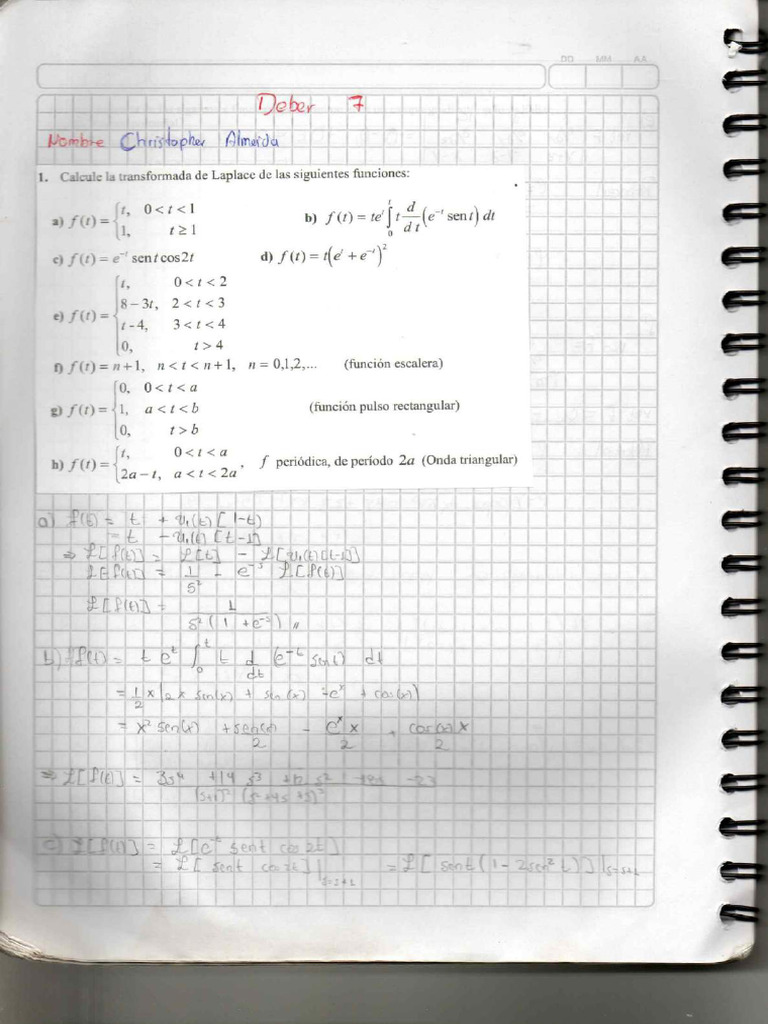 DD MM AA
Deber 7
Nombre Christopher Almeida
1. Calcule la transformada de Laplace de las siguientes funciones:
a) f(t) = { t, 0 < t < 1
1, t ≥ 1
b) f(t) = te^t ∫_0^t t d/dt (e^{-t} sen t) dt
c) f(t) = e^{-t} sen t cos 2t
d) f(t) = t(e^t + e^{-t})^2
e) f(t) = { t, 0 < t < 2
8 – 3t, 2 < t < 3
t - 4, 3 < t < 4
0, t > 4
f) f(t) = n + 1, n < t < n + 1, n = 0,1,2,... (función escalera)
g) f(t) = { 0, 0 < t < a
1, a < t < b (función pulso rectangular)
0, t > b
h) f(t) = { t, 0 < t < a
2a – t, a < t < 2a , f periódica, de período 2a (Onda triangular)
a) f(t) = t + u₁(t) [1-t)
= t - u₁(t) [t-1]
⇒ ℒ[f(t)] = ℒ[t] - ℒ[u₁(t)[t-1]]
ℒ[f(t)] = 1/s² - e^{-s} ℒ[f(t)]
ℒ[f(t)] = 1 / s²(1 + e^{-s}) //
b) f(t) = t e^t ∫_0^t t d/dt (e^{-t} sent) dt
= 1/2 x (2x sen(x) + sen(x) - e^x + cos(x))
= x² sen(x) + sen(x)/2 - e^x x/2 + cos(x)x/2
⇒ ℒ[f(t)] = 3s⁴ + 14 s³ + 12 s² - 23
c) ℒ[f(t)] = ℒ[e^{-t} sent cos 2t]
= ℒ[sent cos 2t]|s=s+1 = ℒ[sent(1 - 2sen² t)]|s=s+1